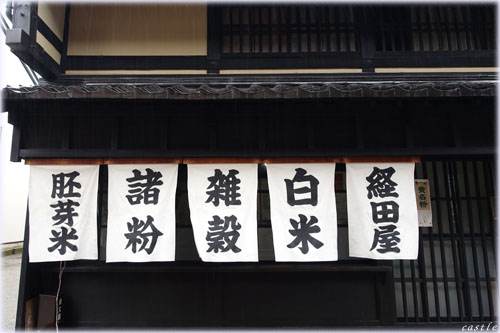 経田屋
白米
雑穀
諸粉
胚芽米
castle